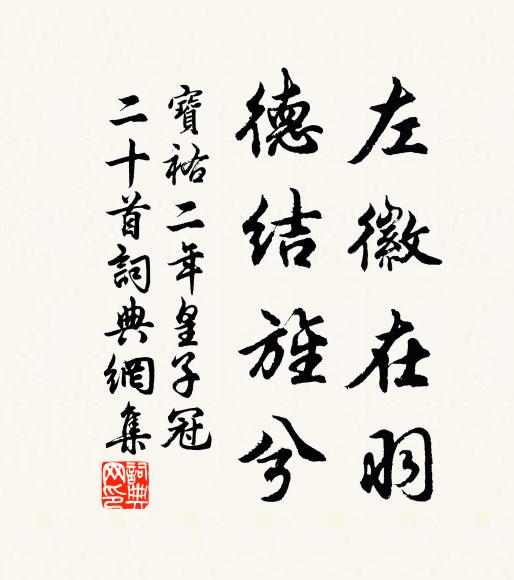 左徽在羽
德结旌兮
寶祐二年皇子冠
二十首詞典網集
詞典网印